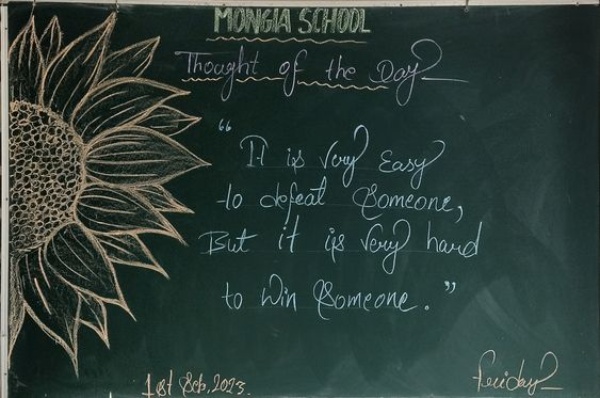 MONGIA SCHOOL
Thought of the Day
“ It is Very Easy
to defeat Someone,
But it is Very hard
to Win Someone. ”
1st Sep, 2023.
Friday